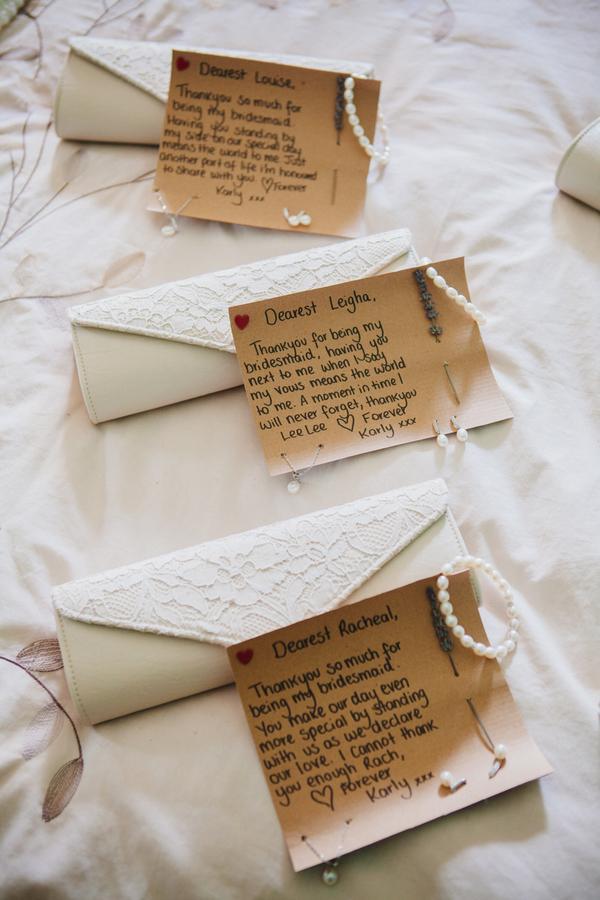 Dearest Louise,
Thankyou so much for
being my bridesmaid.
Having you standing by
my side on our special day
means the world to me. Just
another part of life i'm honoured
to share with you. ♡Forever
Karly xxx
Dearest Leigha,
Thankyou for being my
bridesmaid, having you
next to me when I say
my vows means the world
to me. A moment in time I
will never forget, thankyou
Lee Lee ♡ Forever
Karly xxx
Dearest Racheal,
Thankyou so much for
being my bridesmaid.
You make our day even
more special by standing
with us as we declare
our love. I cannot thank
you enough Rach,
♡ Forever
Karly xxx